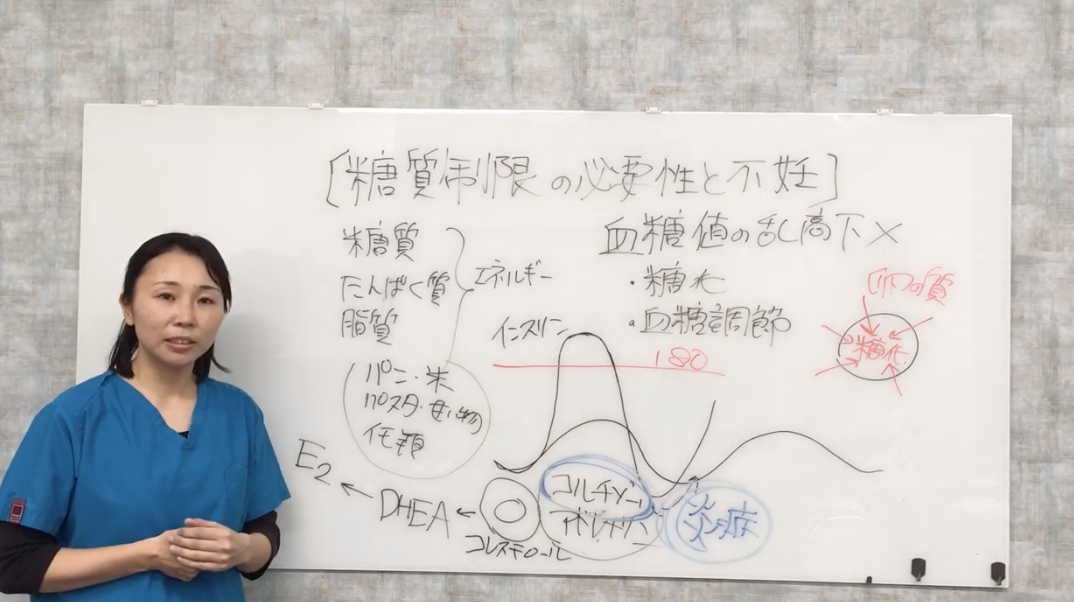 [糖質制限の必要性と不妊]
糖質
たんぱく質
脂質
エネルギー
パン・米
パスタ・甘い物
イモ類
血糖値の乱高下×
・糖化
・血糖調節
インスリン
180
卵の質
糖化
E2 ← DHEA ←
コレステロール
コルチゾール
アドレナリン
炎症